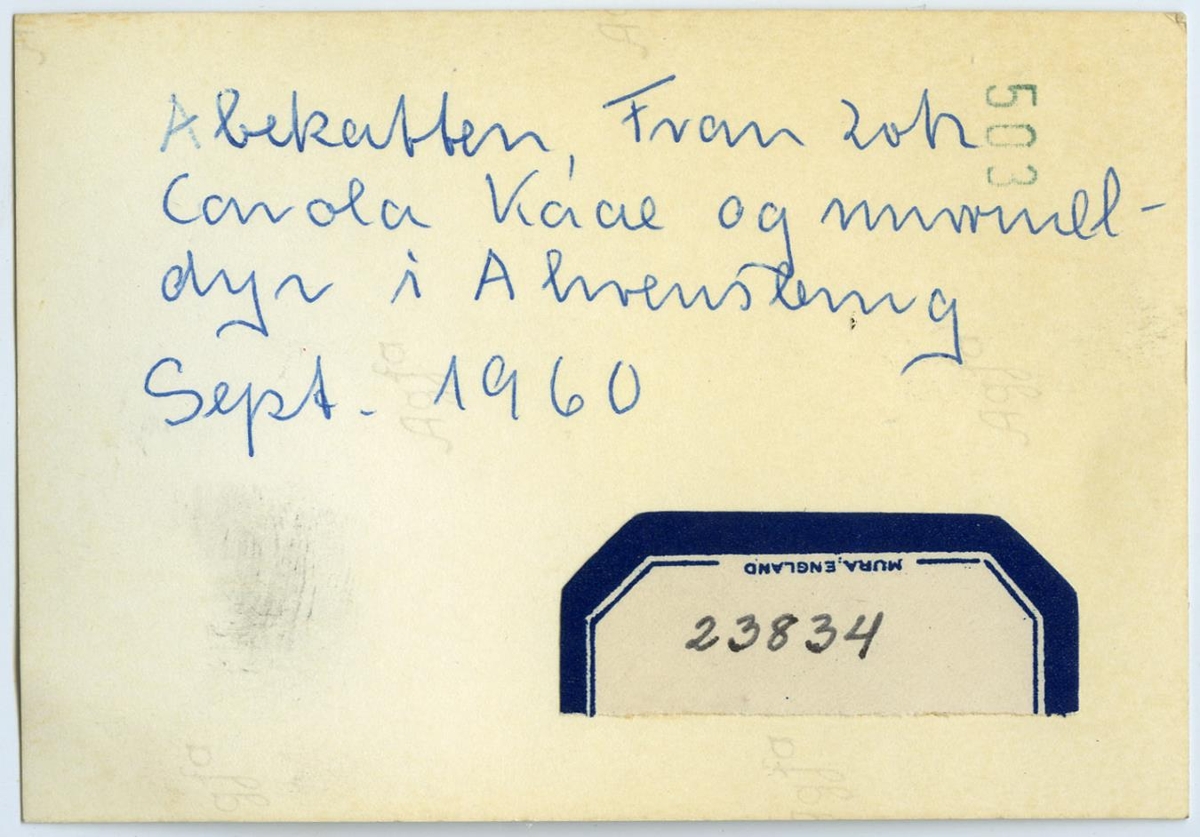 Abekatten, Fran Zotz
Carola Kaae og murmel-
dyr i Ahrensburg
Sept. 1960
503
MURA, ENGLAND
23834
Agfa
Agfa
gfa
gfa